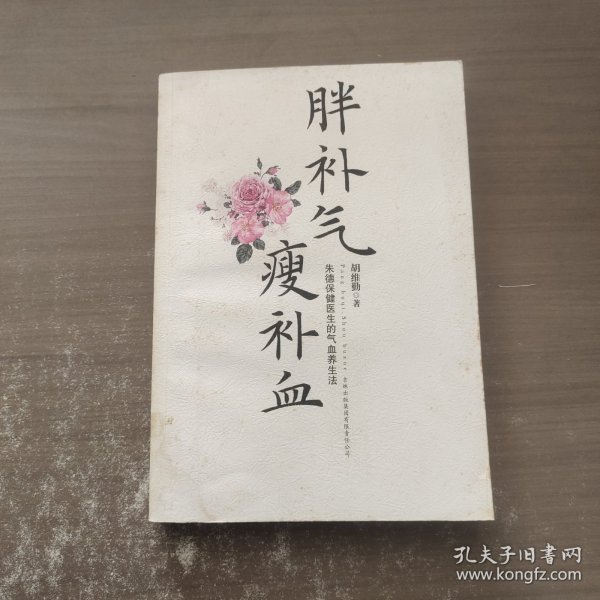 胖补气
瘦补血
胡维勤◎著
Pang buqi Shou buxue
吉林出版集团有限责任公司
朱德保健医生的气血养生法
孔夫子旧书网
www.kongfz.com